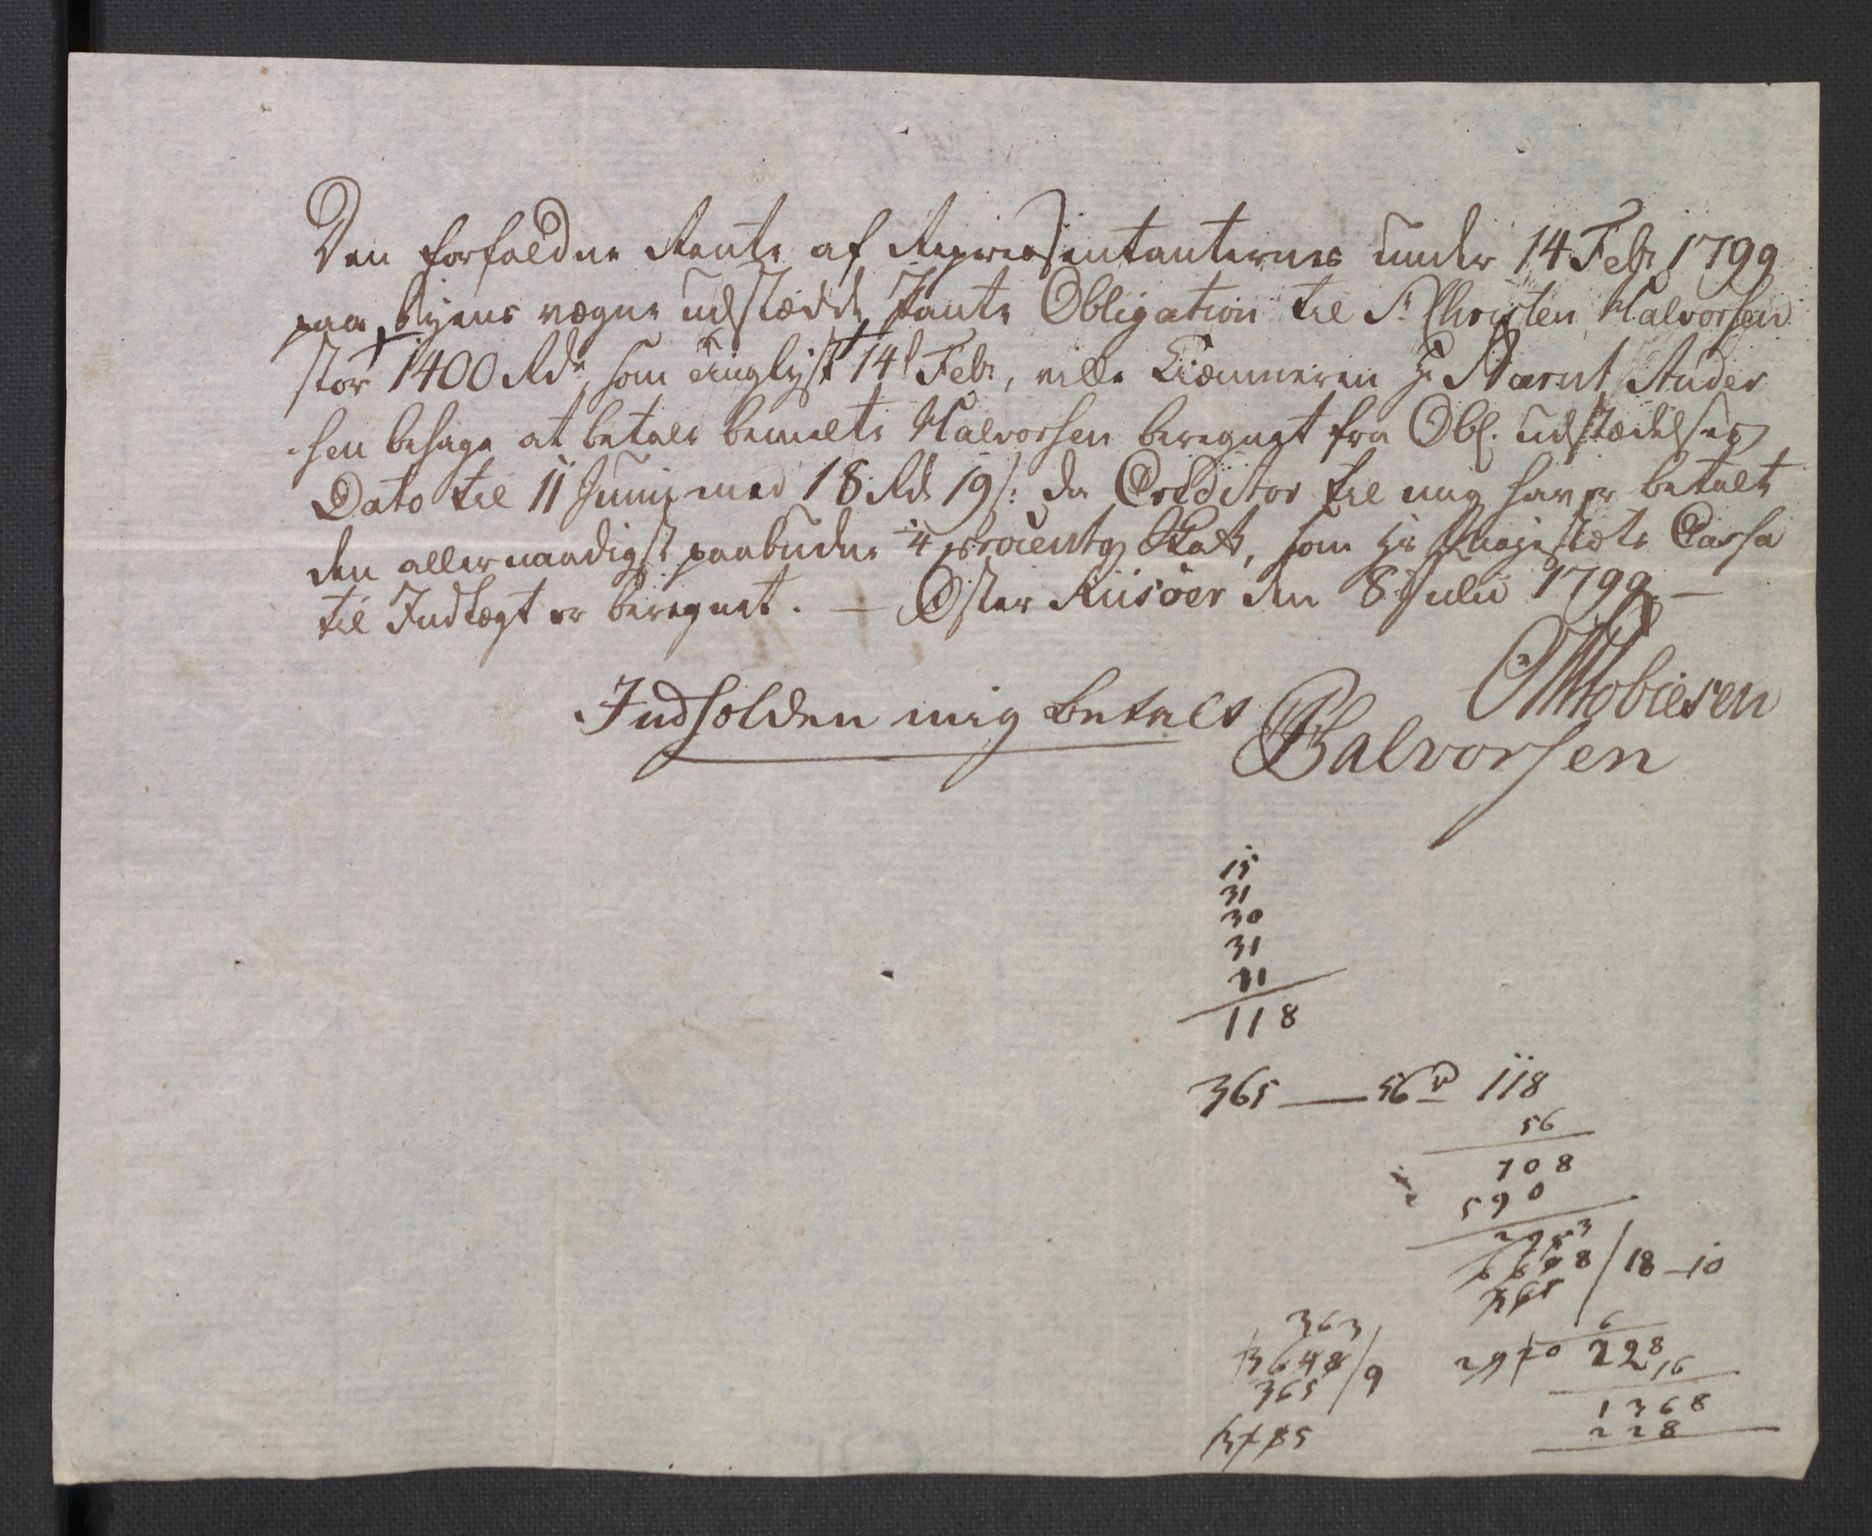 Den forfaldne Rente af Repræsentanternes under 14 Febr 1799
paa Byens vægne udstædde Pante Obligation til Sr Christen Halvorsen
stor 1400 Rdr, som tinglyst 14 Febr, vilde Kiæmneren Hr Aarnt Ander
sen behage at betale bemelte Halvorsen beregnet fra Obl. udstædelses
Dato til 11 Junii med 18 Rd 19 s: da Creditor til mig haver betalt
den allernaadigst paabudne 4 procents Skatt, som Hs Majestæts Cassa
til Indtægt er beregnet. — Øster Riisöer den 8 Julii 1799 —
Tobiesen
Indholden mig betalt Halvorsen
15
31
30
31
11
118
365 — 56 118
56
708
590
6608 / 18 - 10
365
363
3648 / 9
365
6
228
16
1368
228